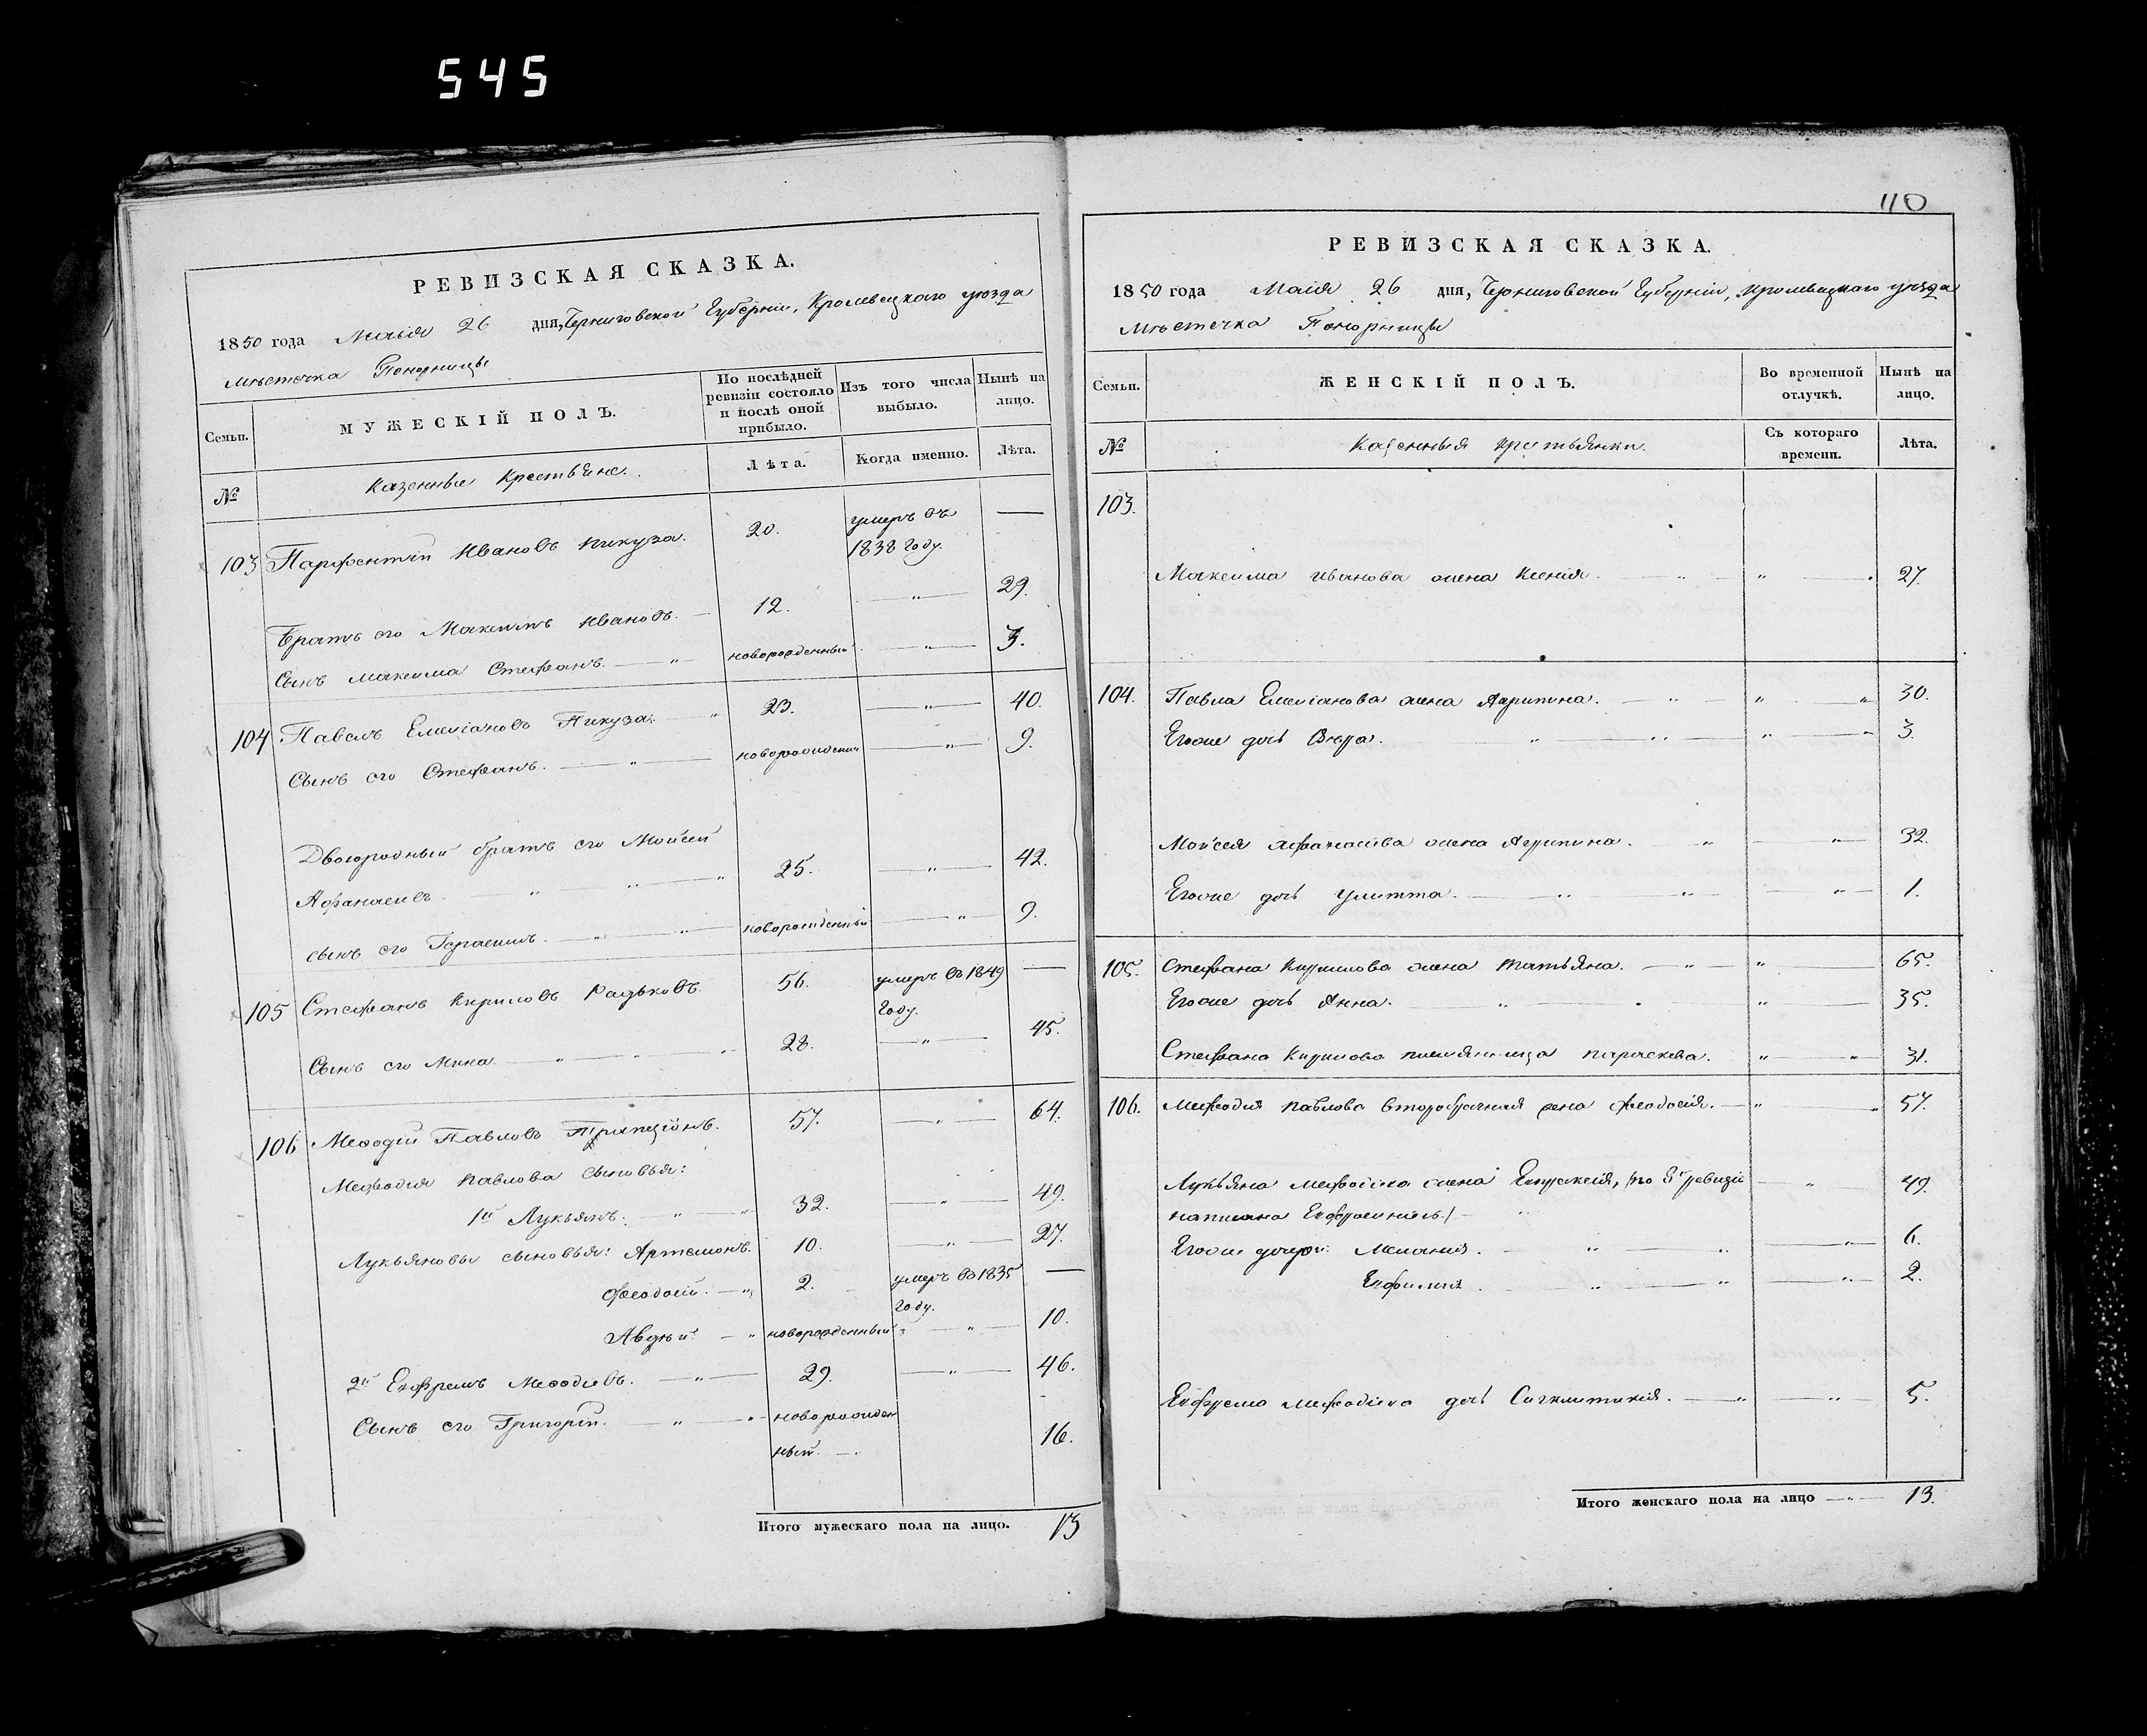 545
РЕВИЗСКАЯ СКАЗКА.
1850 года Маія 26 дня, Черниговской Губерніи, Кролевецкаго уѣзда
мѣстечка Понорницы
Семьи.
МУЖЕСКІЙ ПОЛЪ.
По послѣдней ревизіи состояло и послѣ оной прибыло.
Изъ того числа выбыло.
Нынѣ на лицо.
№
Казенные Крестьяне.
Лѣта.
Когда именно.
Лѣта.
103 Парфентій Ивановъ Пикуза. 20. умеръ въ —
1838 году.
Братъ его Максимъ Ивановъ. — 12. — " — 29.
Сынъ Максима Стефанъ. — " новорожденный. — " — 3.
104 Павелъ Емеліановъ Пикуза. " 23. — " — 40.
Сынъ его Стефанъ. — " — новорожденный — " 9.
Двоюродный братъ его Мойсей
Афанасьевъ. — " " — " 25. — " — 42.
сынъ его Герасимъ. — " " — новорожденный — " 9.
105 Стефанъ Кириловъ Радьковъ. 56. умеръ въ 1849 —
году.
Сынъ его Мина. — " — " " 28. — " — 45.
106 Меѳодій Павловъ 57. — " — 64.
Мефодія Павлова сыновья:
1й Лукьянъ. — " — " 32. — " — 49.
Лукьяновы сыновья: Артемонъ. 10. — " — 27.
Феодосій. — " 2. умеръ въ 1835 —
году.
Авдѣй. — " новорожденный — " — 10.
2й Ефремъ Меѳодіевъ. — " — 29. — " — 46.
Сынъ его Григорій. — " — " новорожден
ный. — 16.
Итого мужескаго пола на лицо. 13
110
РЕВИЗСКАЯ СКАЗКА.
1850 года Маія 26 дня, Черниговской Губерніи, Кролевецкаго уѣзда
мѣстечка Понорницы
Семьи.
ЖЕНСКІЙ ПОЛЪ.
Во временной отлучкѣ.
Нынѣ на лицо.
№
Казенныя крестьянки.
Съ котораго времени.
Лѣта.
103.
Максима Иванова жена Ксенія. — " " — 27.
104. Павла Емеліанова жена Агрипина. — " " — " 30.
Егоже дочь Вѣра. " " — " — " 3.
Мойсея Афанасьева жена Агрипина. " — " — 32.
Егоже дочь Улитта. — " — " — — " — 1.
105. Стефана Кирилова жена Татьяна. — " — " — 65.
Егоже дочь Анна. — " — " — 35.
Стефана Кирилова племянница Параскева. " — " 31.
106. Мефодія Павлова второбрачная жена Феодосія. — " — " 57.
Лукьяна Мефодіева жена Евпраксія, /по 8й ревизіи " — 49.
написана Ефросиніею/ — "
Егоже дочери: Меланія. — " — " — " — 6.
Ефимія. — " — " — " — 2.
Ефрема Мефодіева дочь Сигклитикія. — " — " — 5.
Итого женскаго пола на лицо — " — 13.